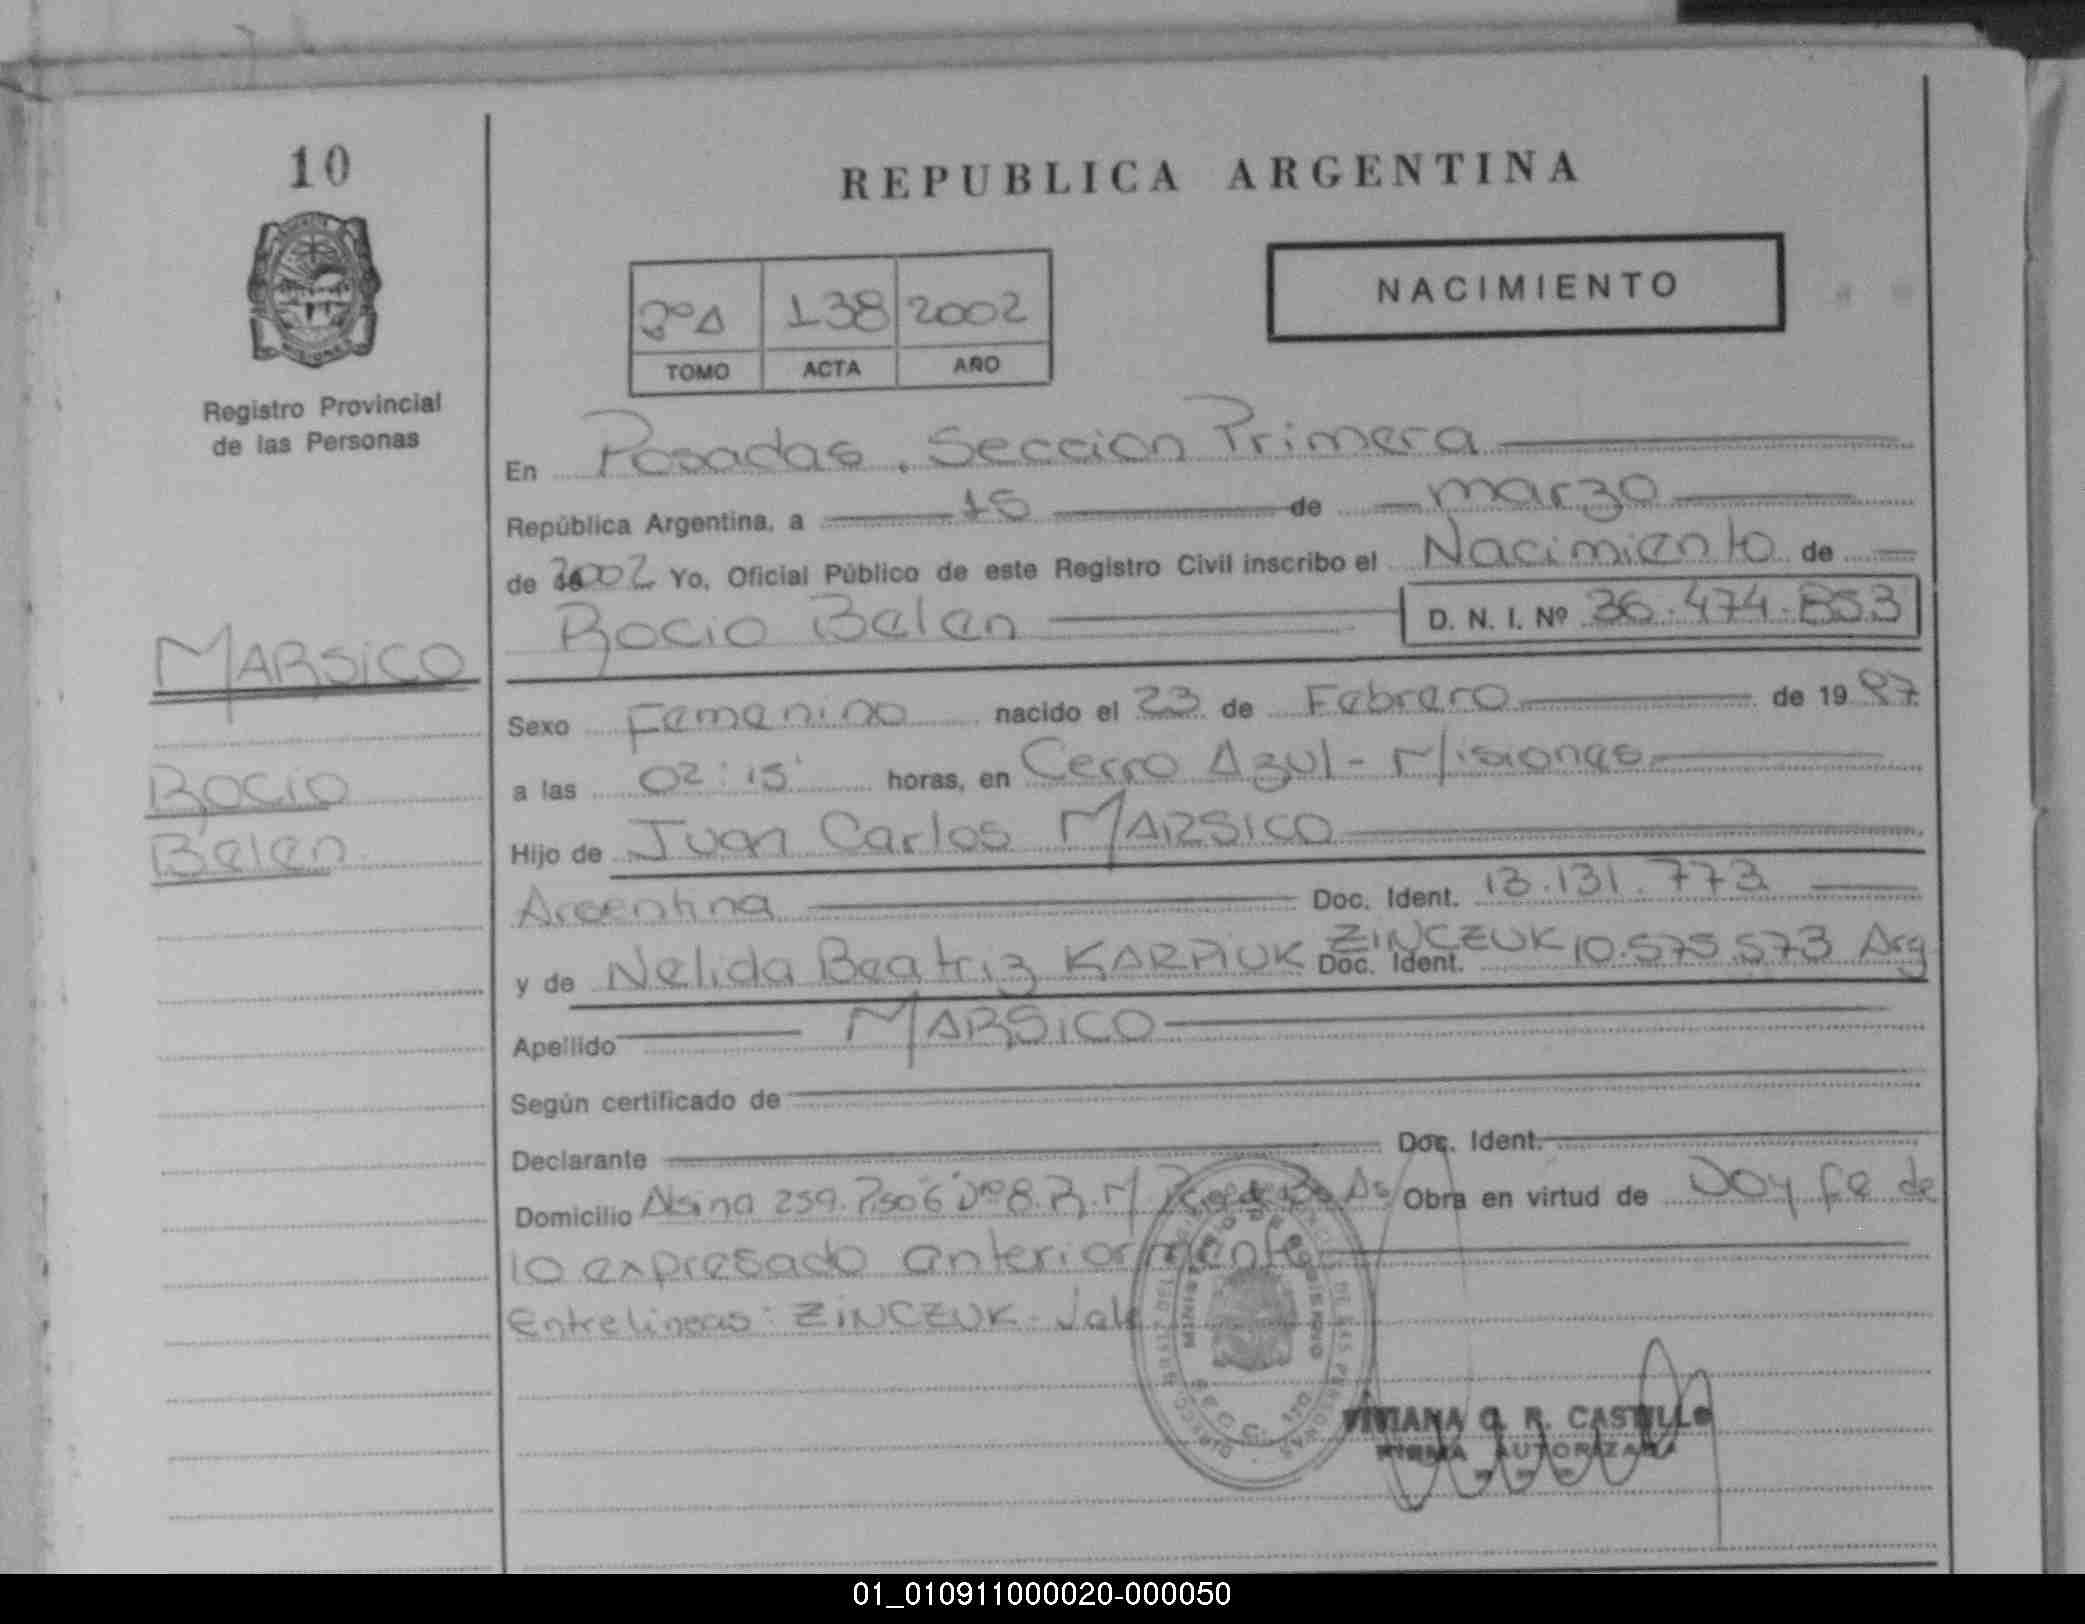 10
REPUBLICA ARGENTINA
NACIMIENTO
2ºA 138 2002
TOMO ACTA AÑO
Registro Provincial
de las Personas
En Posadas. Seccion Primera
República Argentina, a 15 de marzo
de 2002 Yo, Oficial Público de este Registro Civil inscribo el Nacimiento de
Rocio Belen D. N. I. Nº 36.474.853
MARSICO
Rocio
Belen
Sexo Femenino nacido el 23 de Febrero de 19 97
a las 02:15' horas, en Cerro Azul - Misiones
Hijo de Juan Carlos MARSICO
Argentina Doc. Ident. 13.131.773
ZINCZUK
y de Nelida Beatriz KARPIUK Doc. Ident. 10.575.573 Arg
Apellido MARSICO
Según certificado de
Declarante Doc. Ident.
Domicilio Alsina 259. Piso 6 Dto 8. R. M. Bs As Obra en virtud de Doy fe de
lo expresado anteriormente
Entrelineas: ZINCZUK - Vale
MINISTERIO DE GOBIERNO
DE LAS PERSONAS
VIVIANA G. R. CASTILLO
FIRMA AUTORIZADA
01_010911000020-000050